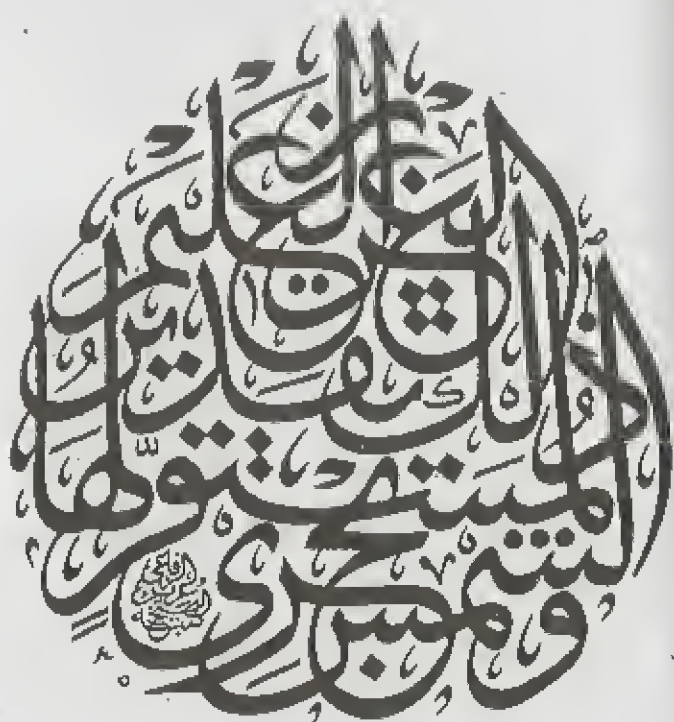 والشمس تجري
لمستقر لها
ذلك تقدير
العزيز العليم